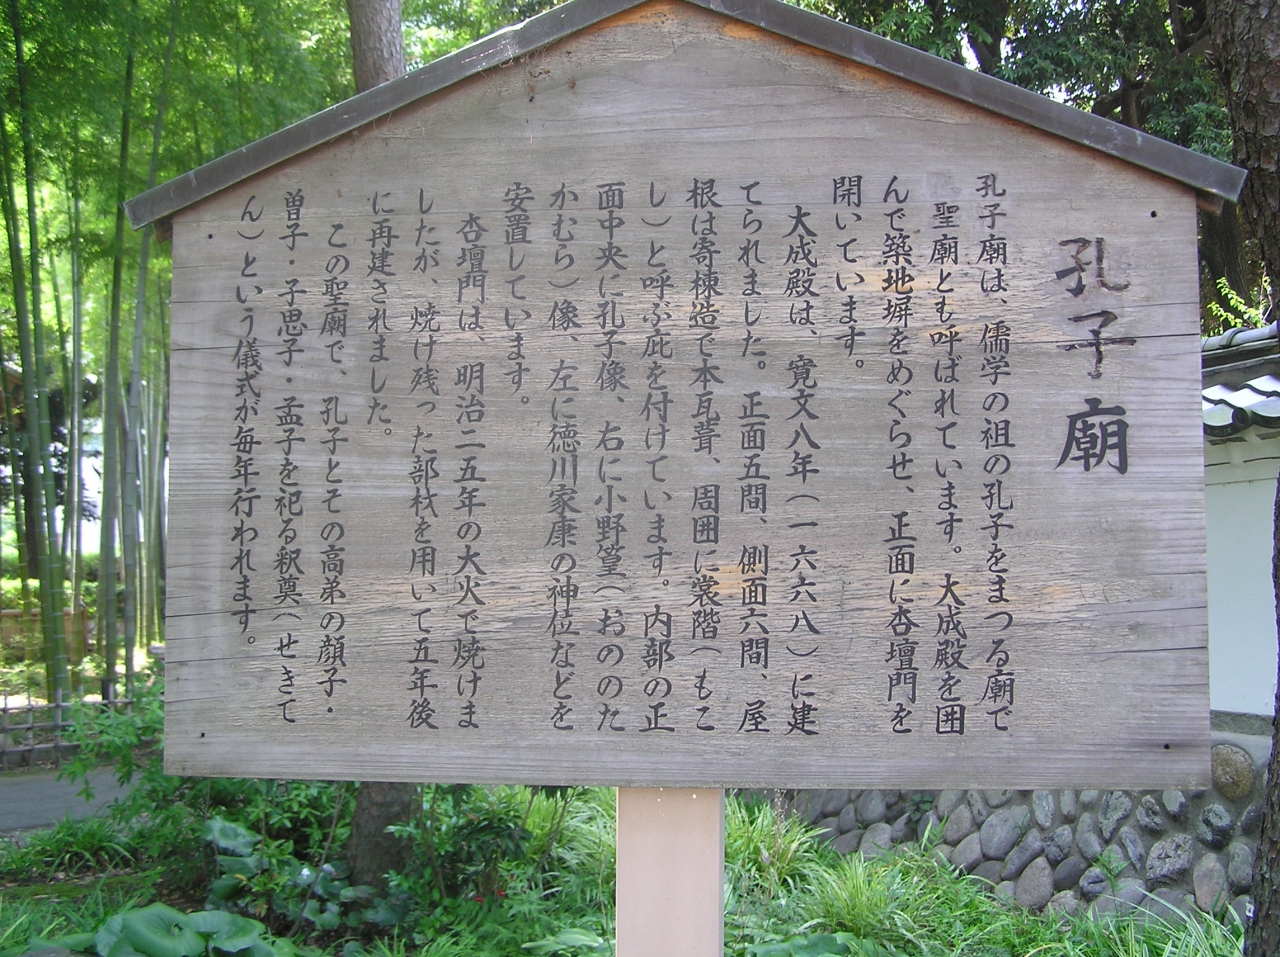 孔子廟
孔子廟は、儒学の祖の孔子をまつる廟で
聖廟とも呼ばれています。大成殿を囲
んで築地塀をめぐらせ、正面に杏壇門を
開いています。
大成殿は、寛文八年(一六六八)に建
てられました。正面五間、側面六間、屋
根は寄棟造で本瓦葺、周囲に裳階(もこ
し)と呼ぶ庇を付けています。内部の正
面中央に孔子像、右に小野篁(おののた
かむら)像、左に徳川家康の神位などを
安置しています。
杏壇門は、明治二五年の大火で焼けま
したが、焼け残った部材を用いて五年後
に再建されました。
この聖廟で、孔子とその高弟の顔子・
曽子・子思子・孟子を祀る釈奠(せきて
ん)という儀式が毎年行われます。